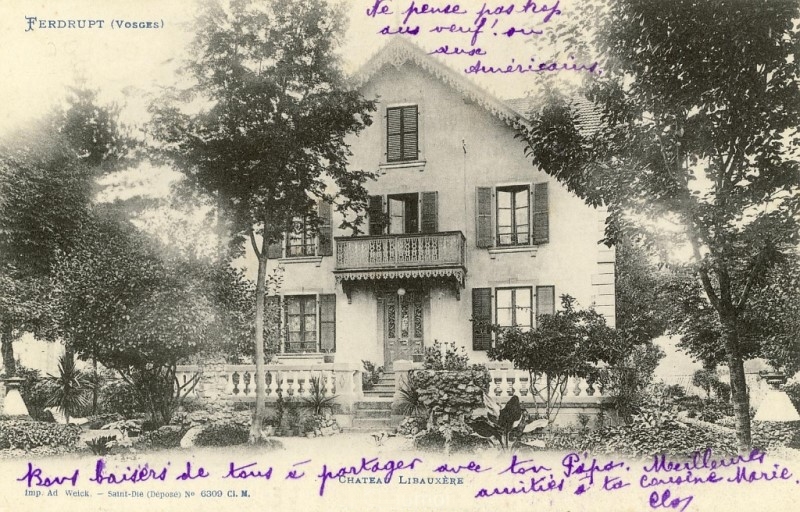 FERDRUPT (VOSGES)
Ne pense pas trop
aux veuf! ou
aux
Américains.
Bons baisers de tous à partager avec ton Papa. Meilleures
amitiés à ta cousine Marie.
CHATEAU LIBAUXÈRE
Imp. Ad Weick. - Saint-Dié (Déposé) No 6309 Cl. M.